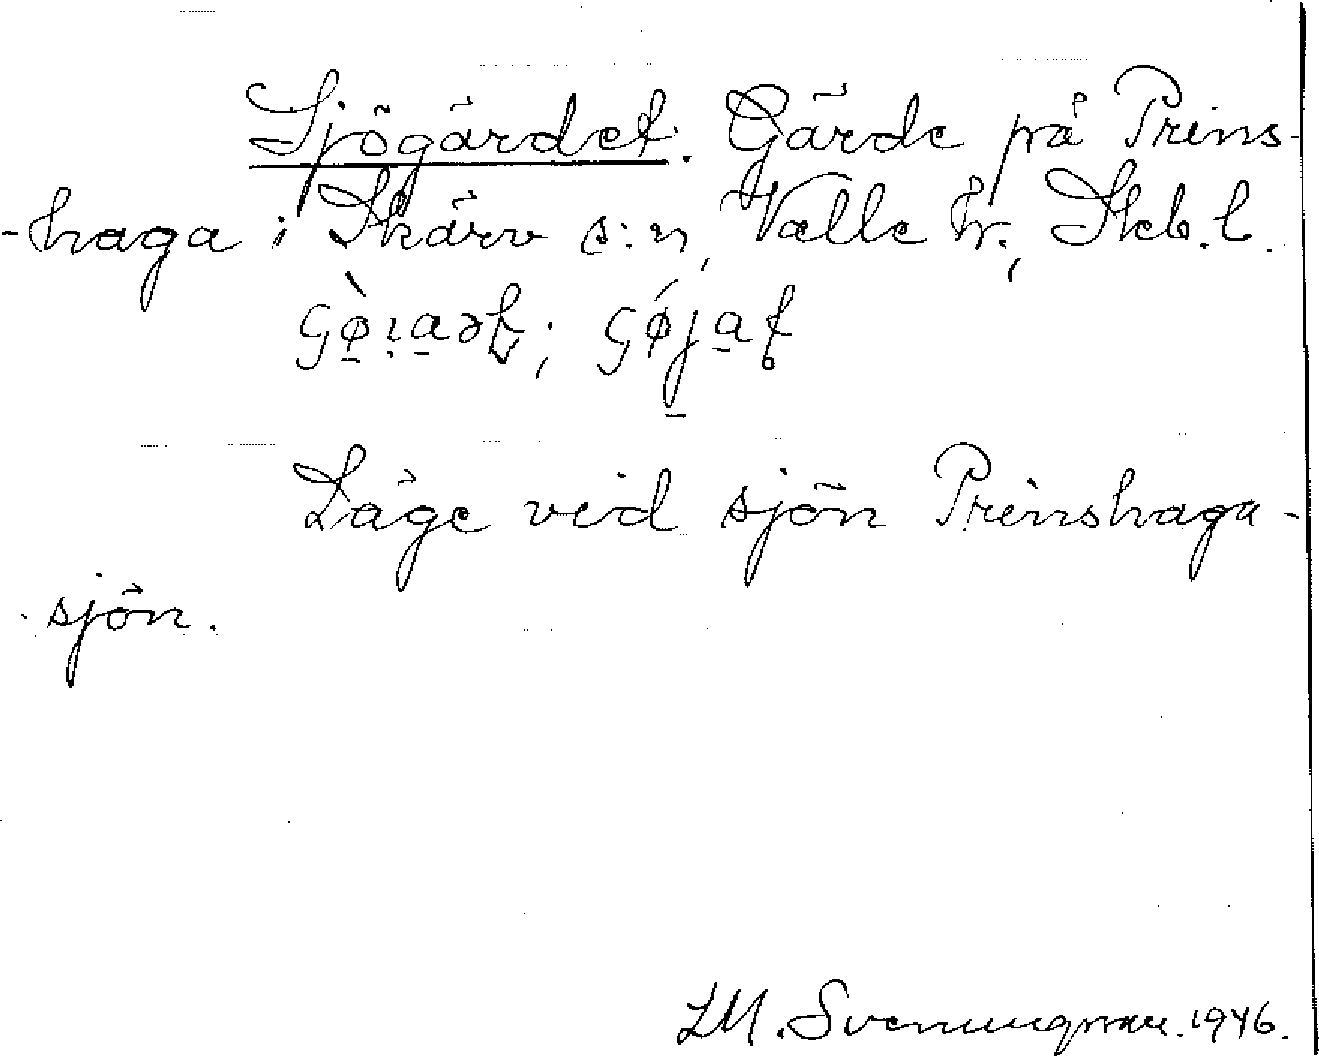 Sjögärdet. Gärde på Prins-
-haga i Skärv s:n, Valle hr., Skb. l.
Läge vid sjön Prinshaga-
sjön.
LM. Svenungsson. 1946.